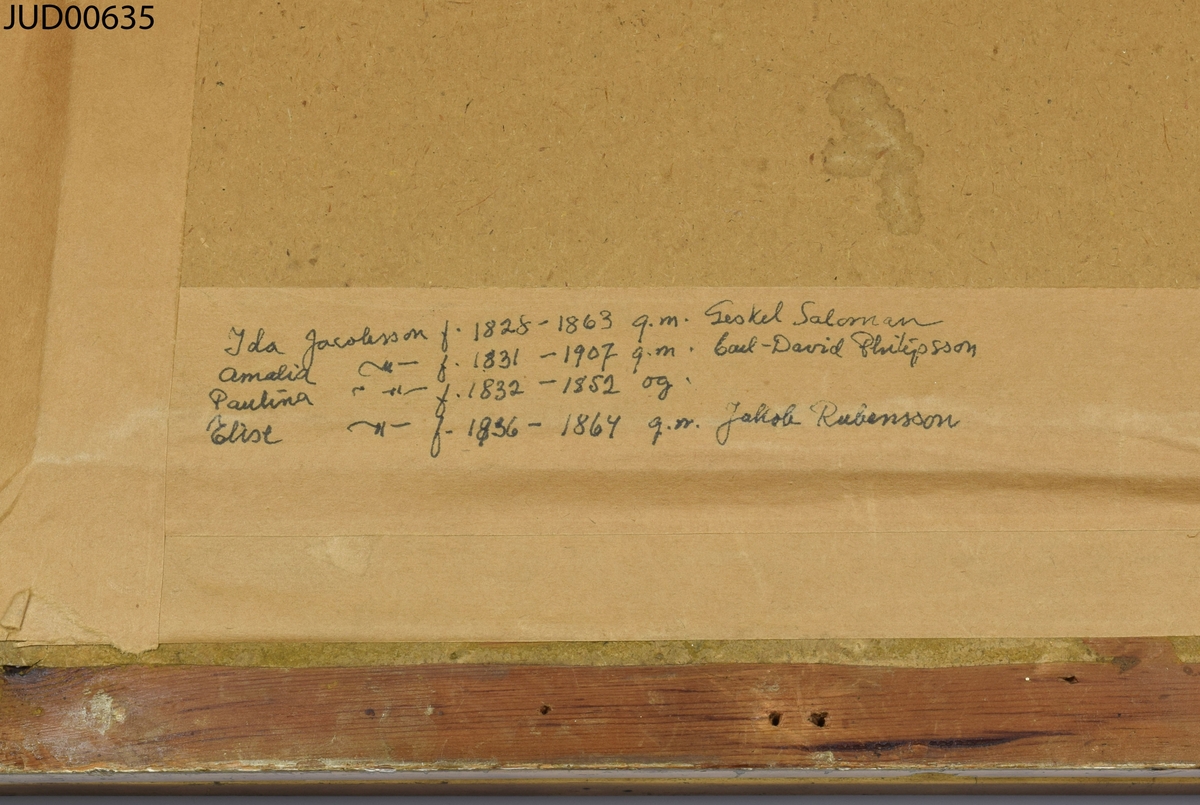 JUD00635
Ida Jacobsson f. 1828-1863 g.m. Geskel Saloman
Amalia —"— f. 1831 - 1907 g.m. Carl-David Philipsson
Paulina —"— f. 1832 - 1852 og.
Elise —"— f. 1836 - 1864 g.m. Jakob Rubensson